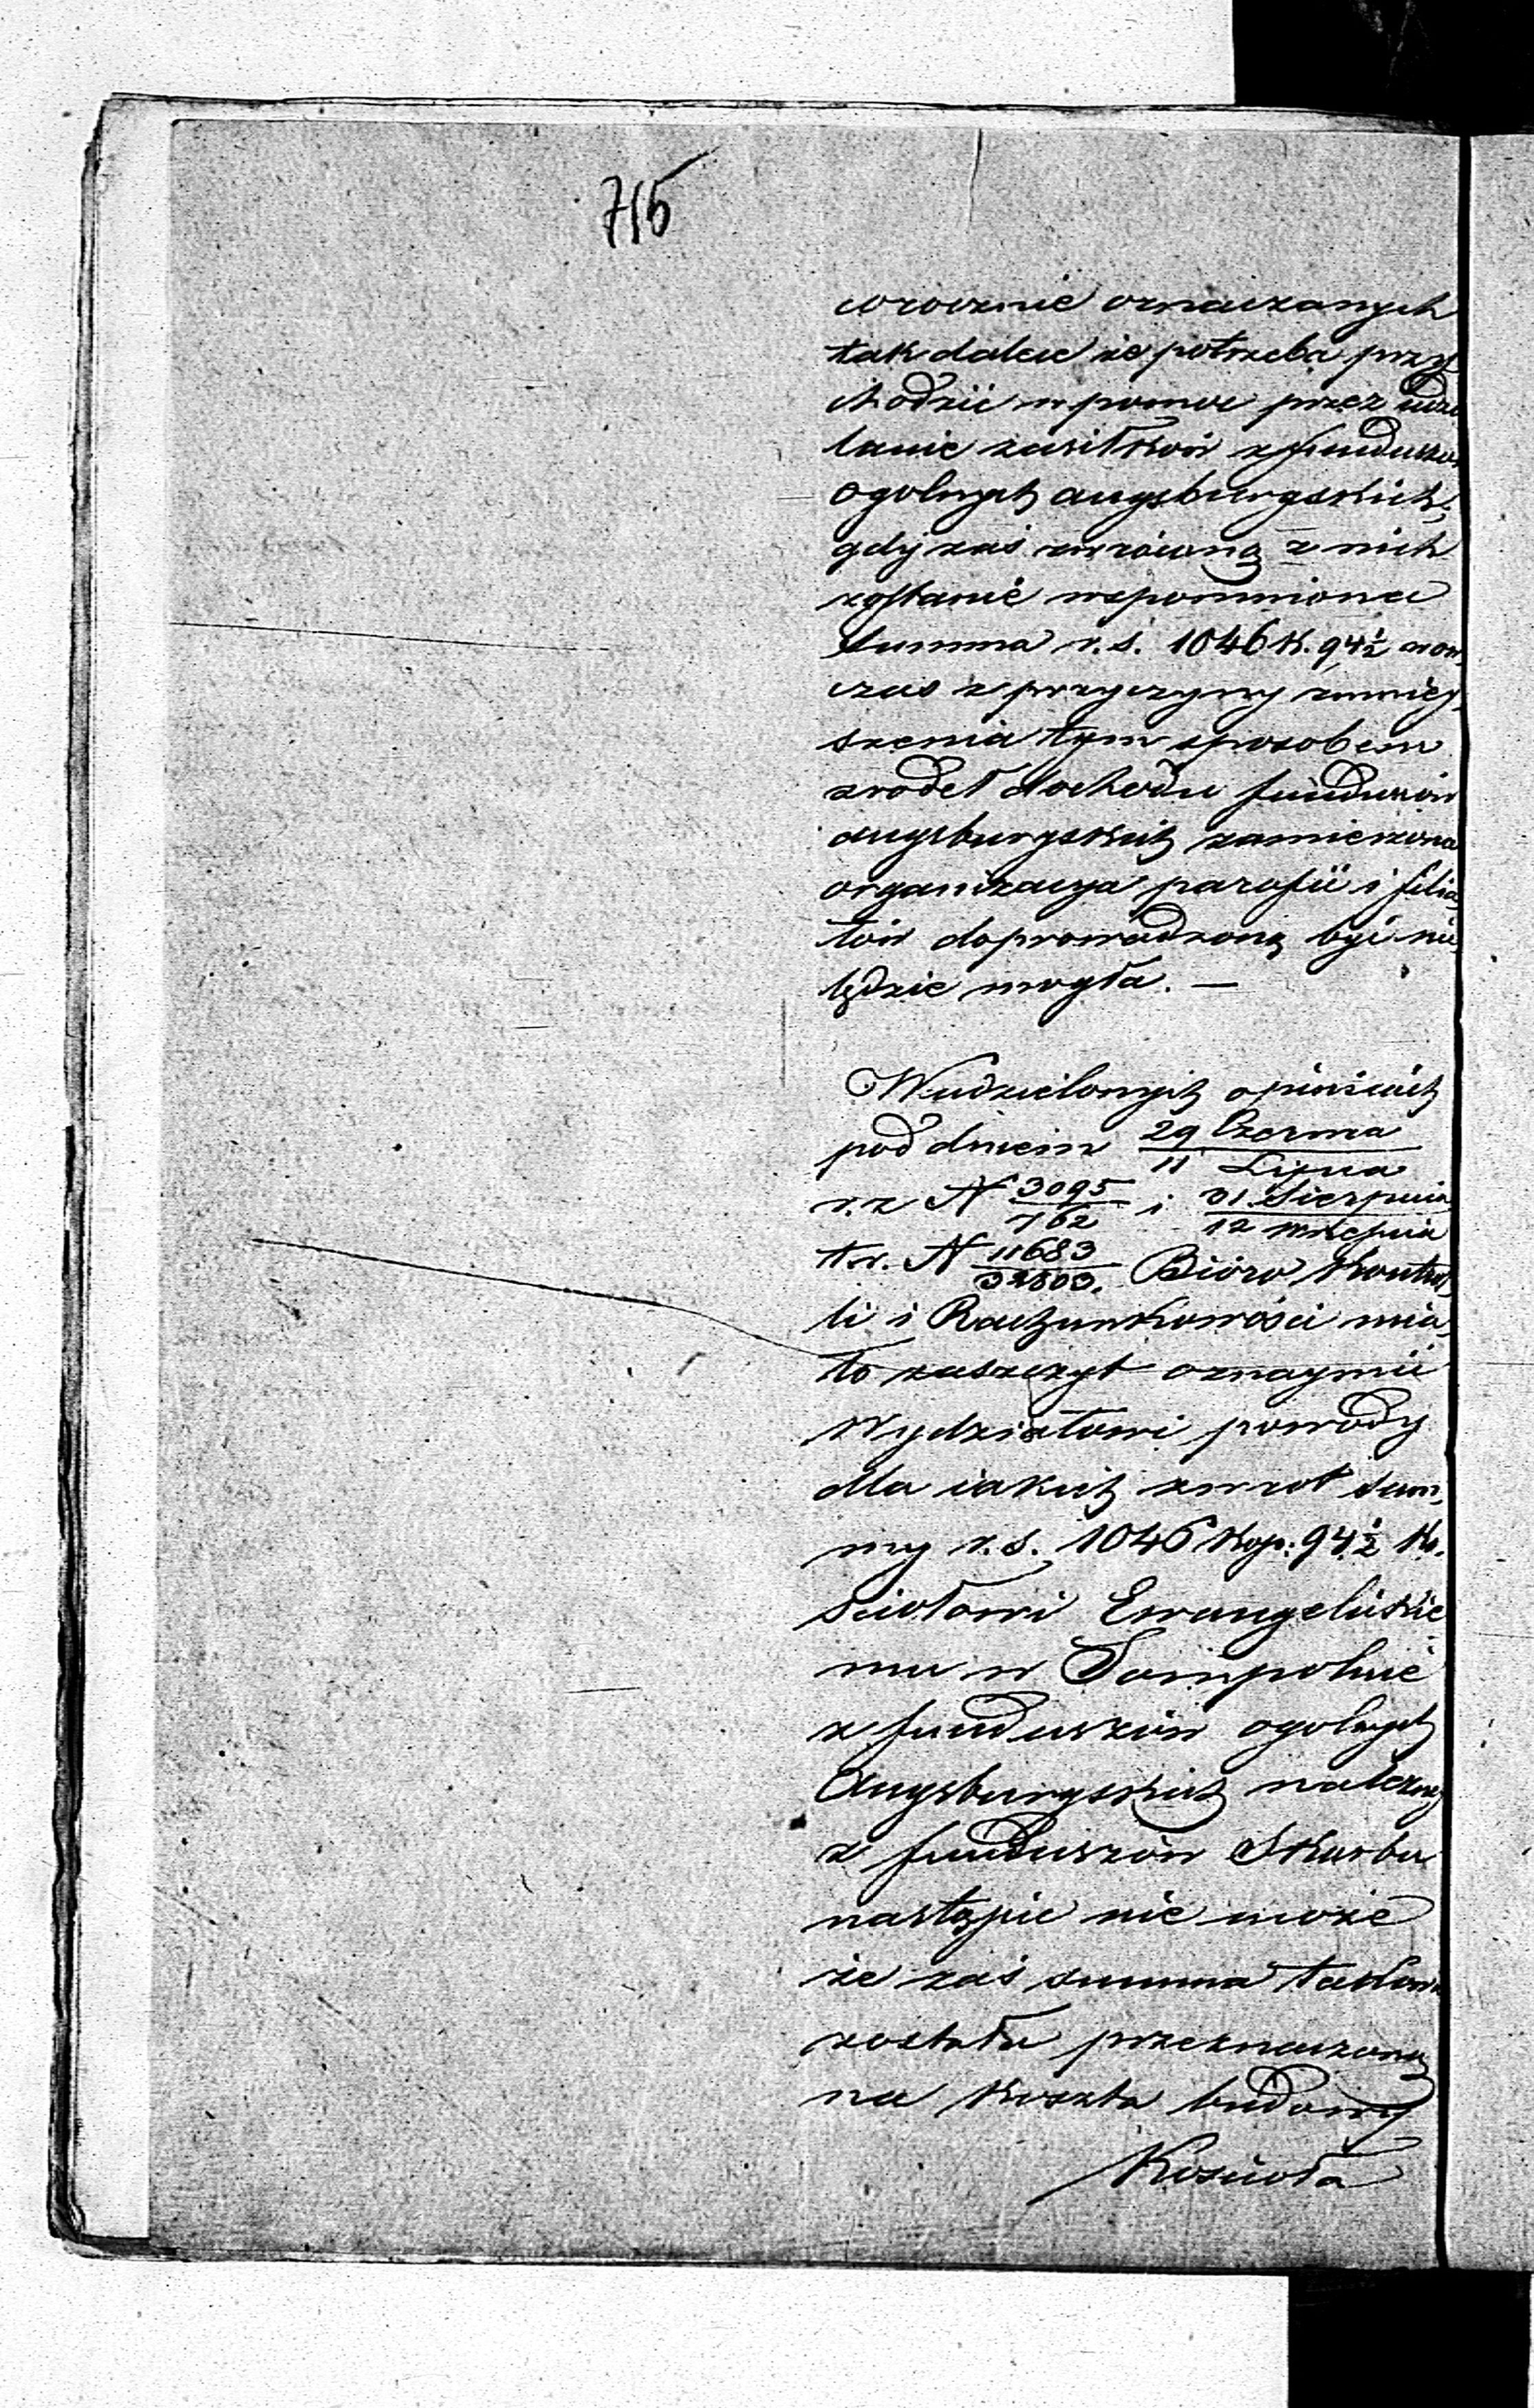 715
corocznie oznaczanych
tak dalece że potrzeba przy
chodzić w pomoc przez udzie
lanie zasiłków z funduszów
ogolnych augsburgskich,
gdy zaś zwróconą z nich
zostanie wspomniona
Summa r.s. 1046 k. 94½ wow
czas z przyczyny zmniej
szenia tym sposobem
zrodeł dochodu funduszów
augsburgskich zamierzona
organizacya parafii i filia
łów doprowadzoną być nie
będzie mogła. —
W udzielonych opiniach
pod dniem 29 Czerwca / 11 Lipca
r.z. N 3095/762 i 31 Sierpnia / 12 Września
t.r. N 11683/32803. Bióro Kontrol
li i Rachunkowości mia
ło zaszczyt oznaymić
Wydziałowi powody
dla iakich zwrot sum
my r.s. 1046 kop: 94½ Ko
sciołowi Ewangelickie
mu w Sompolnie
z funduszów ogolnych
Augsburgskich należnej
z funduszów Skarbu
nastąpic nie może
że zaś summa takowa
została przeznaczoną
na koszta budowy
Koscioła